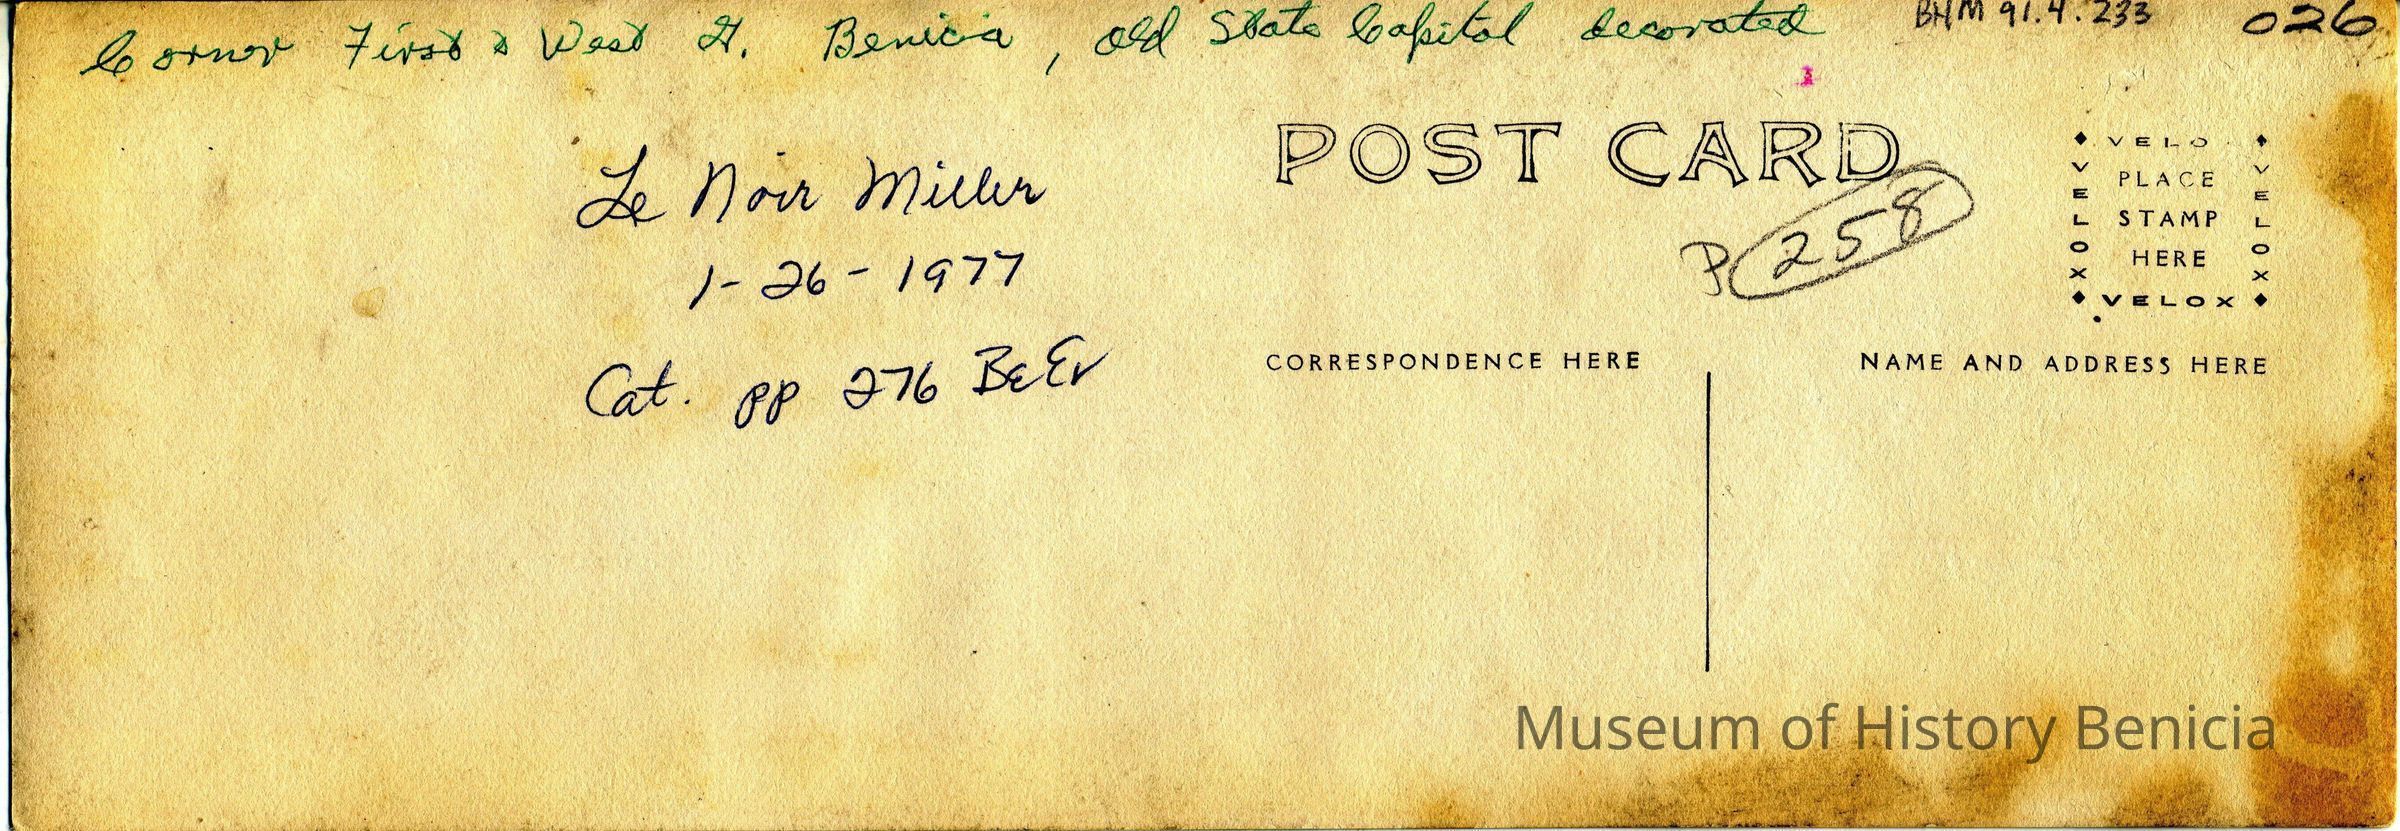 Corner First & West St. Benicia, Old State Capitol decorated
BHM 91.4.233
026
Le Noir Miller
1-26-1977
Cat. pp 276
POST CARD
P 258
VELO
VELOX
PLACE
STAMP
HERE
VELOX
VELOX
CORRESPONDENCE HERE
NAME AND ADDRESS HERE
Museum of History Benicia